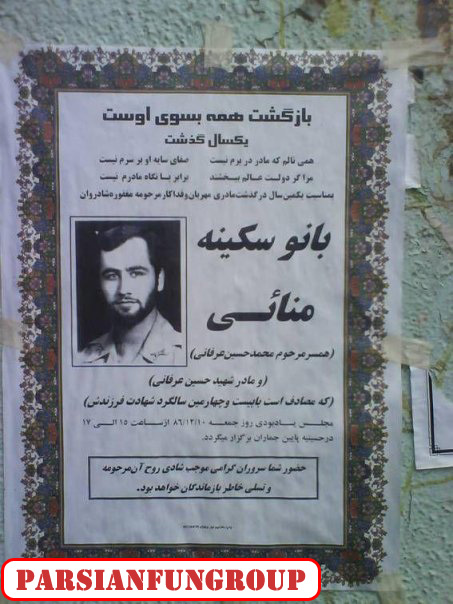 بازگشت همه بسوی اوست
یکسال گذشت
همی نالم که مادر در برم نیست صفای سایه او بر سرم نیست
مرا گر دولت عالم ببخشند برابر با نگاه مادرم نیست
بمناسبت یکمین سال درگذشت مادری مهربان و فداکار مرحومه مغفوره شادروان
بانو سکینه
منائی
(همسر مرحوم محمدحسین عرفانی)
(و مادر شهید حسین عرفانی)
(که مصادف است با بیست و چهارمین سالگرد شهادت فرزندش)
مجلس یادبودی روز جمعه ۸۶/۱۲/۱۰ از ساعت ۱۵ الی ۱۷
در حسینیه پایین جماران برگزار میگردد.
حضور شما سروران گرامی موجب شادی روح آن مرحومه
و تسلی خاطر بازماندگان خواهد بود.
PARSIANFUNGROUP